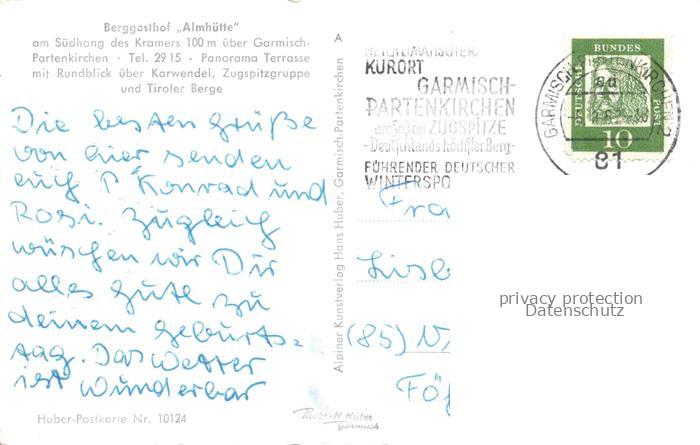 Berggasthof „Almhütte“
am Südhang des Kramers 100 m über Garmisch-
Partenkirchen · Tel. 29 15 · Panorama Terrasse
mit Rundblick über Karwendel, Zugspitzgruppe
und Tiroler Berge
Die besten Grüße
von hier senden
euch Konrad und
Rosi. Zugleich
wünschen wir Dir
alles Gute zu
deinem Geburts=
tag. Das Wetter
ist wunderbar
Huber-Postkarte Nr. 10124
A
Alpiner Kunstverlag Hans Huber, Garmisch-Partenkirchen
HEILKLIMATISCHER
KURORT
GARMISCH-
PARTENKIRCHEN
am Fuße der ZUGSPITZE
-Deutschlands höchster Berg-
FÜHRENDER DEUTSCHER
WINTERSPO
GARMISCH-PARTENKIRCHEN 2
81
DEUTSCHE
BUNDES
POST
10
Fra
(85)
privacy protection
Datenschutz
Huber
Garmisch